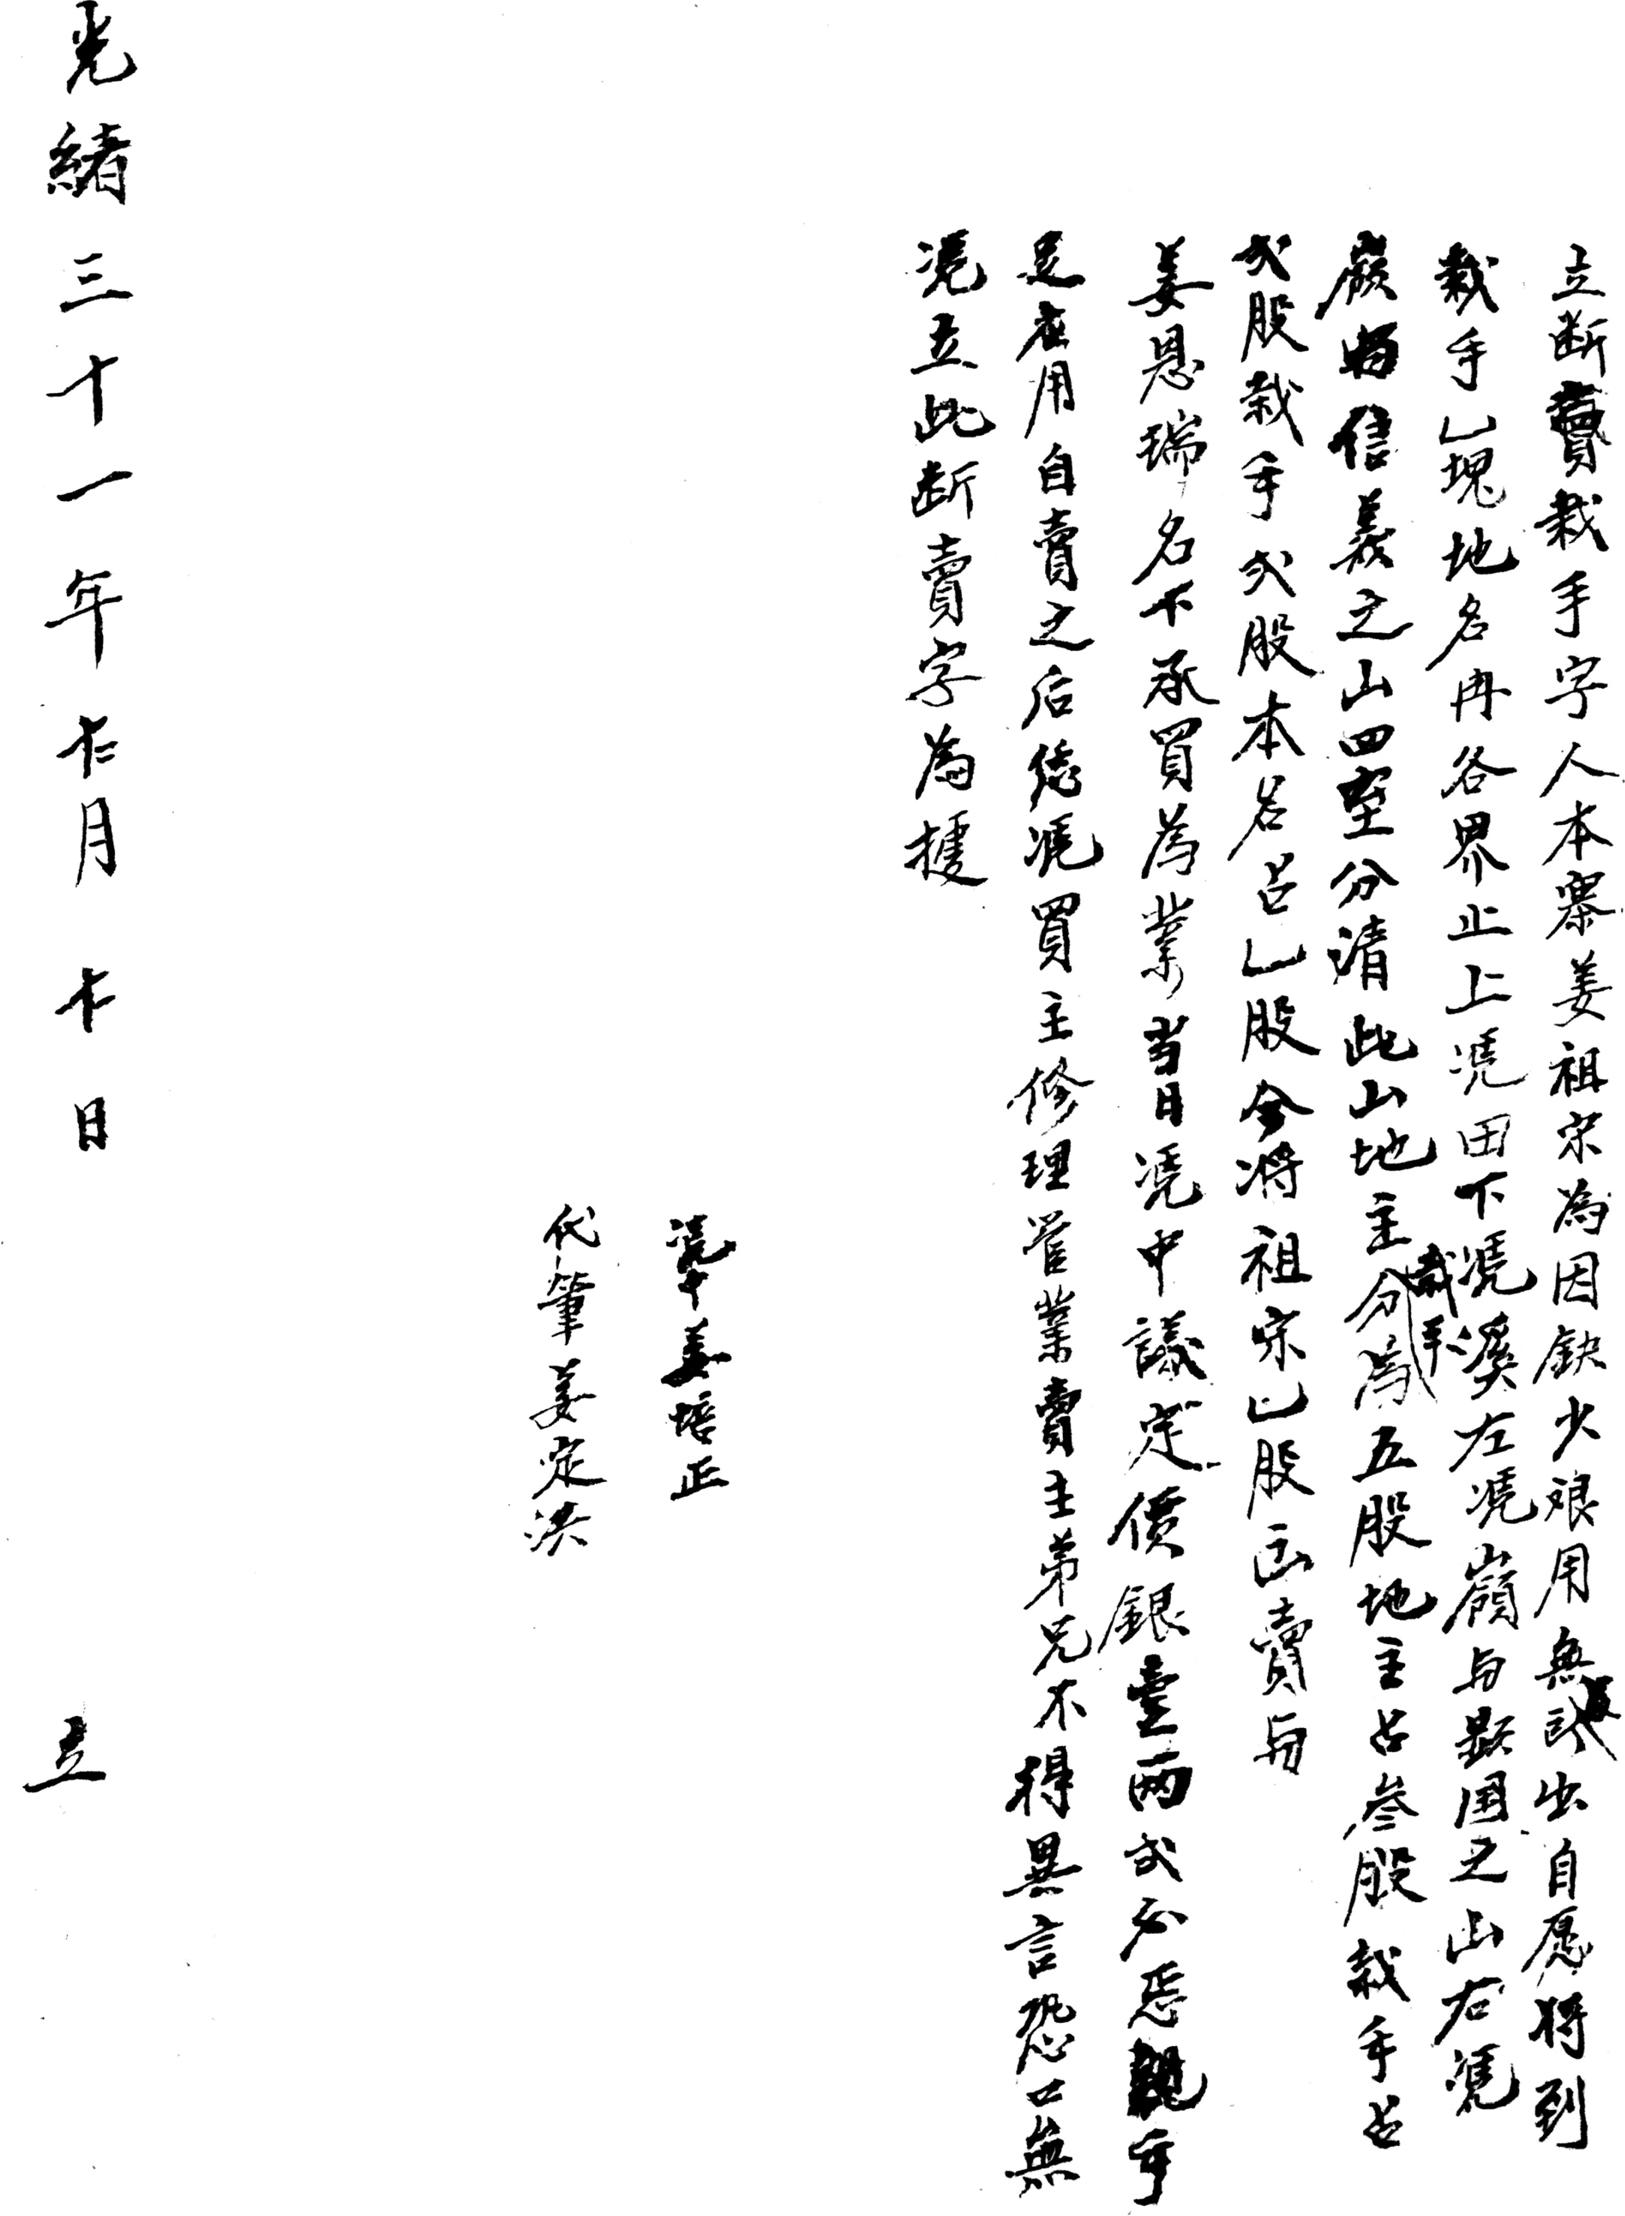 立断賣栽手字人本寨姜祖宗為因缺少艰用無所出自愿将到
栽手乚塊地名冉各界止上凴田下凴溪左凴嶺与顕国之山右凴
嶺与信義之山四至分清此山地主栽手分為五股地主占叁股栽手占
弍股栽手弍股本名占乚股今将祖宗乚股出賣与
姜恩瑞名下承買為業当日凴中議定價銀壹两弍分焉親手
足在用自賣之后凴買主修理管業賣主弟兄不得異言恐口無
凴立此断賣字為據
凴中姜培正
代筆姜定洪
光緒三十一年月日立